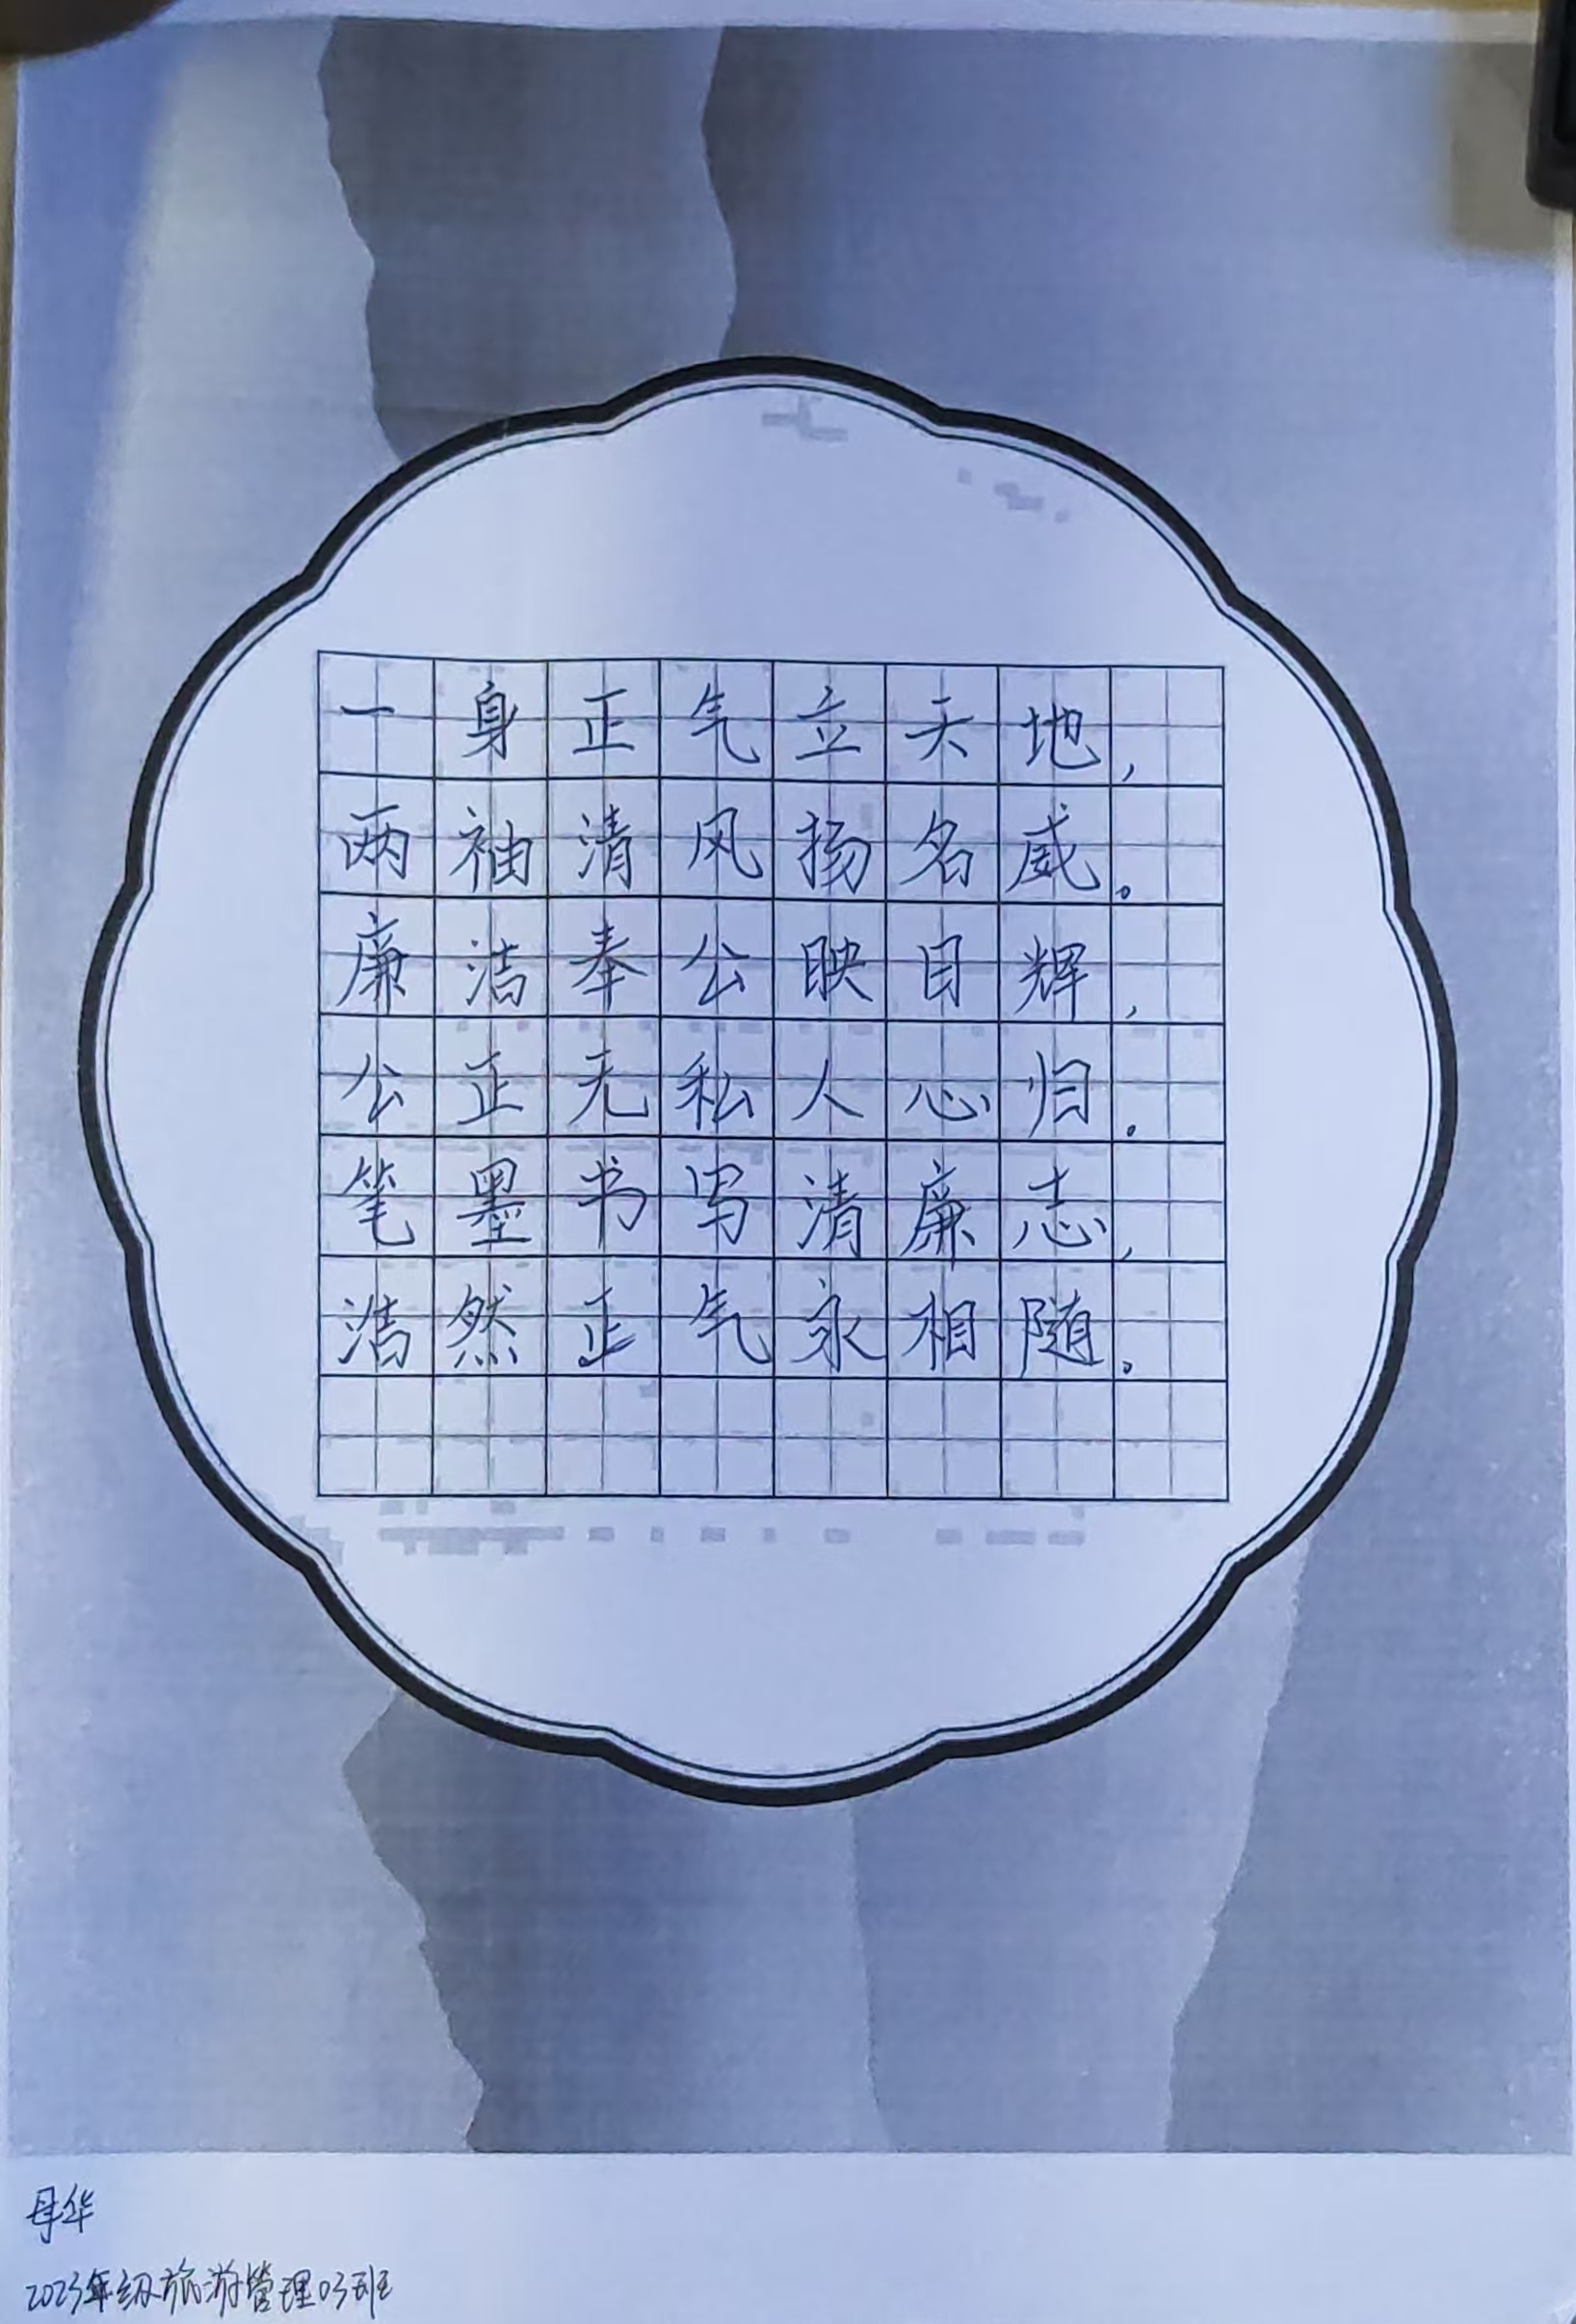 一身正气立天地,
两袖清风扬名威。
廉洁奉公映目辉,
公正无私人心归。
笔墨书写清廉志,
浩然正气永相随。
母华
2023年级旅游管理03班